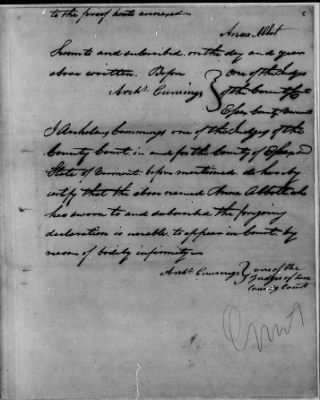 to the proof hereto annexed.
Sworn to and subscribed on the day and year
above written. Before one of the Judges
Archs. Cummings of the County Ct
Essex County Vermont
I Archelaus Cummings one of the Judges of the
County Court in and for the County of Essex and
State of Vermont before mentioned do hereby
certify that the above named Anna Abbott who
has sworn to and subscribed the foregoing
declaration is unable to appear in Court by
reason of bodily infirmity
Archs. Cummings one of the
Judges of said
County Court